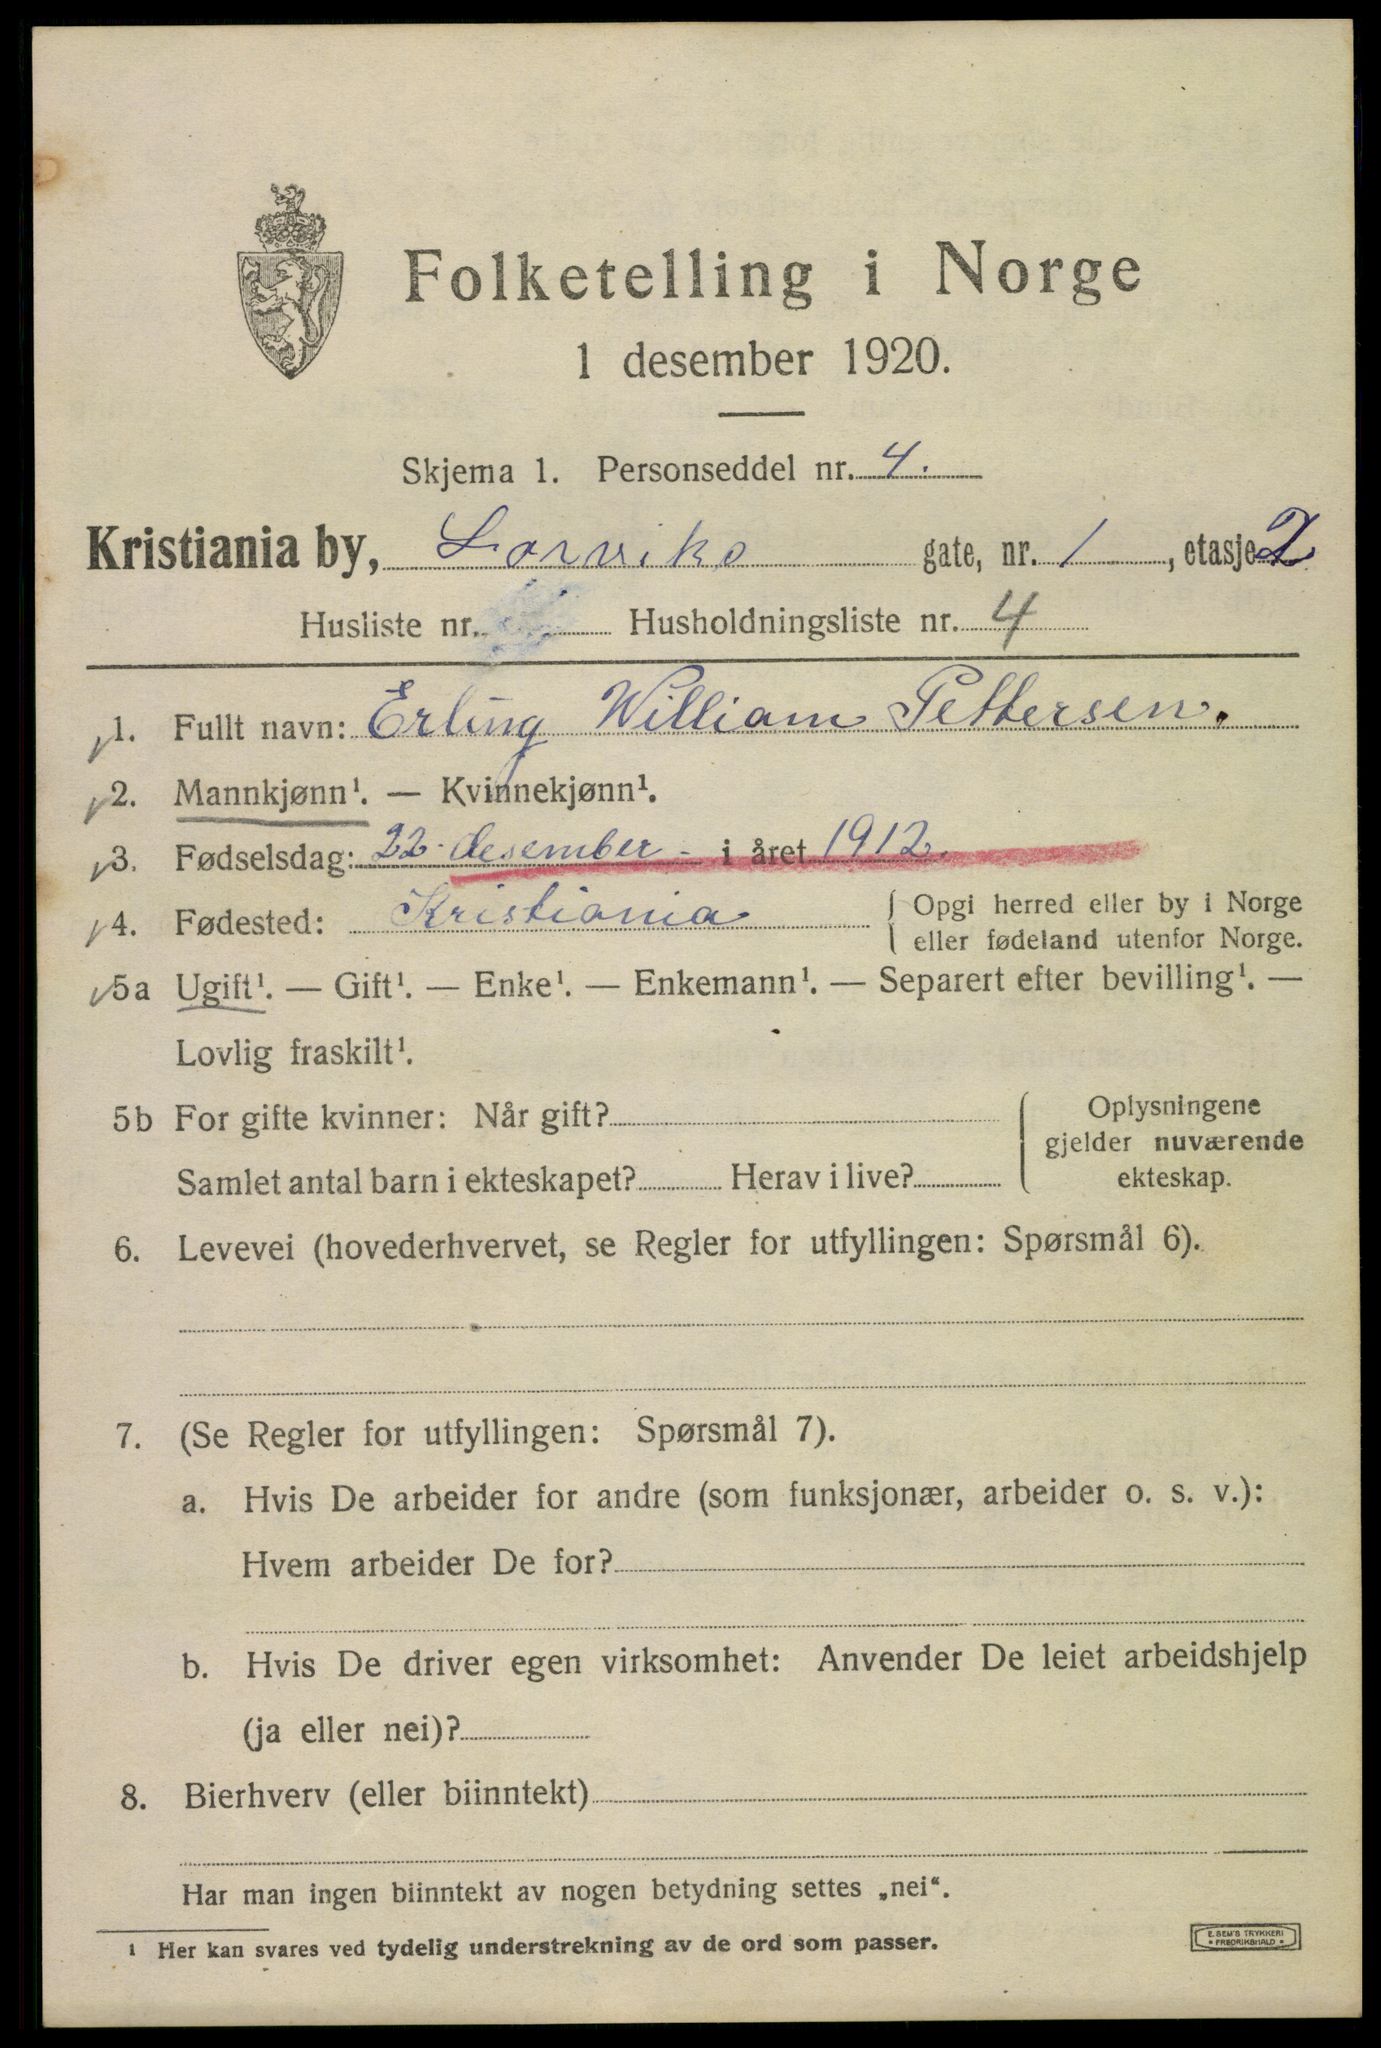 Folketelling i Norge
1 desember 1920.
Skjema 1. Personseddel nr. 4.
Kristiania by, Larviks gate, nr. 1, etasje 2
Husliste nr. Husholdningsliste nr. 4
1. Fullt navn: Erling William Pettersen.
2. Mannkjønn¹. — Kvinnekjønn¹.
3. Fødselsdag: 22 desember - i året 1912.
4. Fødested: Kristiania { Opgi herred eller by i Norge
eller fødeland utenfor Norge.
5a Ugift¹. — Gift¹. — Enke¹. — Enkemann¹. — Separert efter bevilling¹. —
Lovlig fraskilt¹.
5b For gifte kvinner: Når gift? { Oplysningene
gjelder nuværende
Samlet antal barn i ekteskapet? Herav i live? ekteskap.
6. Levevei (hovederhvervet, se Regler for utfyllingen: Spørsmål 6).
7. (Se Regler for utfyllingen: Spørsmål 7).
a. Hvis De arbeider for andre (som funksjonær, arbeider o. s. v.):
Hvem arbeider De for?
b. Hvis De driver egen virksomhet: Anvender De leiet arbeidshjelp
(ja eller nei)?
8. Bierhverv (eller biinntekt)
Har man ingen biinntekt av nogen betydning settes „nei“.
¹ Her kan svares ved tydelig understrekning av de ord som passer.
E. SEM'S TRYKKERI
• FREDRIKSHALD •